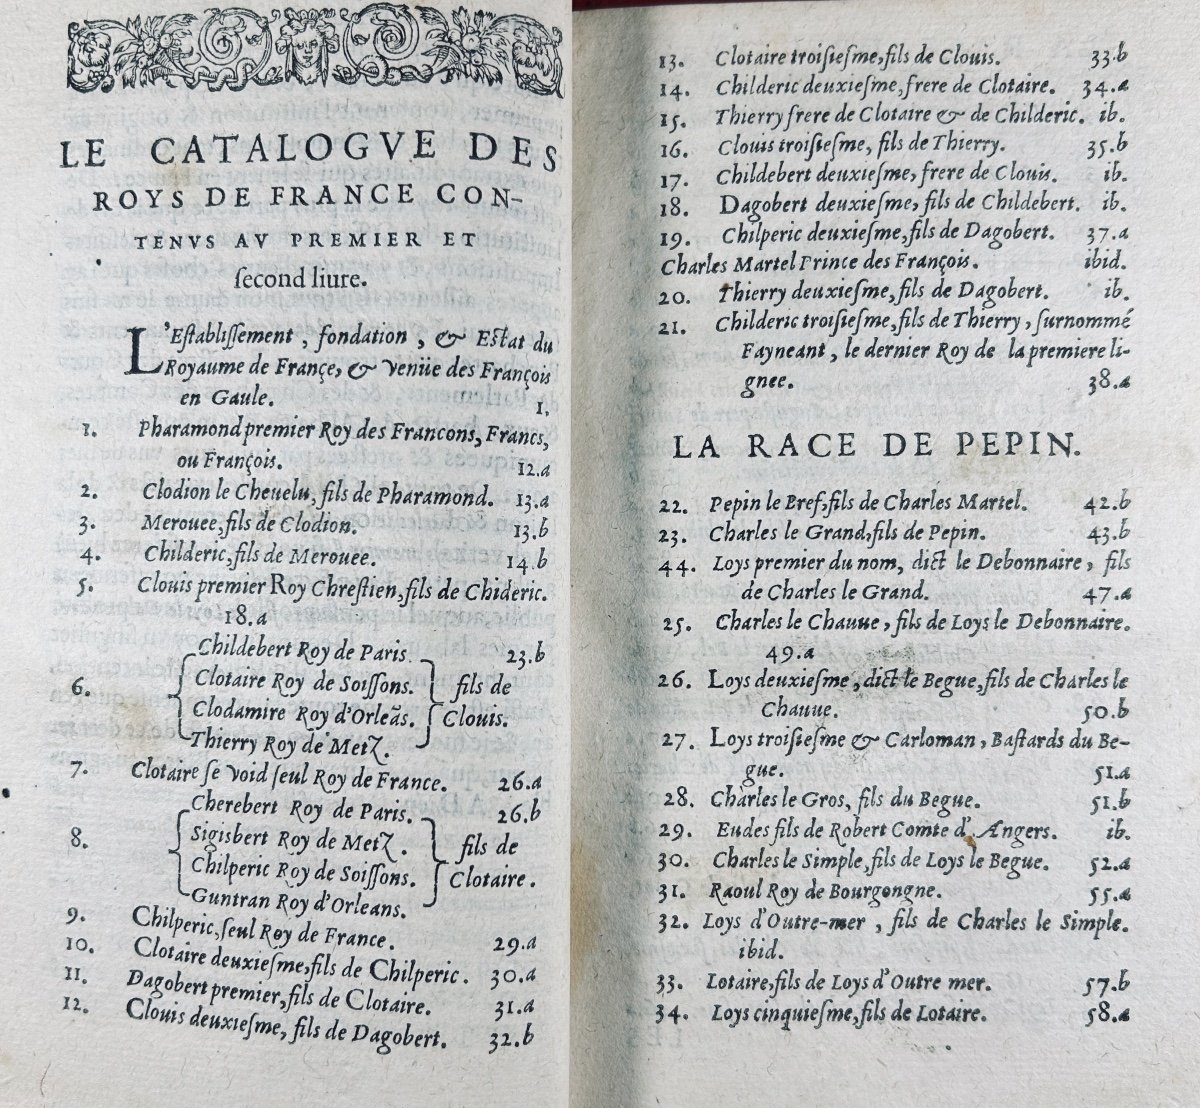 LE CATALOGVE DES
ROYS DE FRANCE CON-
TENVS AV PREMIER ET
ſecond liure.
L'Eſtabliſſement, fondation, & Eſtat du
Royaume de Françe, & venüe des François
en Gaule. 1.
1. Pharamond premier Roy des Francons, Francs,
ou François. 12.a
2. Clodion le Cheuelu, fils de Pharamond. 13.a
3. Merouee, fils de Clodion. 13.b
4. Childeric, fils de Merouee. 14.b
5. Clouis premier Roy Chreſtien, fils de Chideric.
18.a
Childebert Roy de Paris. 23.b
6. Clotaire Roy de Soiſſons. fils de
Clodamire Roy d'Orleãs. Clouis.
Thierry Roy de Metz.
7. Clotaire ſe void ſeul Roy de France. 26.a
Cherebert Roy de Paris. 26.b
8. Sigisbert Roy de Metz. fils de
Chilperic Roy de Soiſſons. Clotaire.
Guntran Roy d'Orleans.
9. Chilperic, ſeul Roy de France. 29.a
10. Clotaire deuxieſme, fils de Chilperic. 30.a
11. Dagobert premier, fils de Clotaire. 31.a
12. Clouis deuxieſme, fils de Dagobert. 32.b
13. Clotaire troiſieſme, fils de Clouis. 33.b
14. Childeric deuxieſme, frere de Clotaire. 34.a
15. Thierry frere de Clotaire & de Childeric. ib.
16. Clouis troiſieſme, fils de Thierry. 35.b
17. Childebert deuxieſme, frere de Clouis. ib.
18. Dagobert deuxieſme, fils de Childebert. ib.
19. Chilperic deuxieſme, fils de Dagobert. 37.a
Charles Martel Prince des François. ibid.
20. Thierry deuxieſme, fils de Dagobert. ib.
21. Childeric troiſieſme, fils de Thierry, ſurnommé
Fayneant, le dernier Roy de la premiere li-
gnee. 38.a
LA RACE DE PEPIN.
22. Pepin le Bref, fils de Charles Martel. 42.b
23. Charles le Grand, fils de Pepin. 43.b
44. Loys premier du nom, dict le Debonnaire, fils
de Charles le Grand. 47.a
25. Charles le Chauue, fils de Loys le Debonnaire.
49.a
26. Loys deuxieſme, dict le Begue, fils de Charles le
Chauue. 50.b
27. Loys troiſieſme & Carloman, Baſtards du Be-
gue. 51.a
28. Charles le Gros, fils du Begue. 51.b
29. Eudes fils de Robert Comte d'Angers. ib.
30. Charles le Simple, fils de Loys le Begue. 52.a
31. Raoul Roy de Bourgongne. 55.a
32. Loys d'Outre-mer, fils de Charles le Simple.
ibid.
33. Lotaire, fils de Loys d'Outre mer. 57.b
34. Loys cinquieſme, fils de Lotaire. 58.a